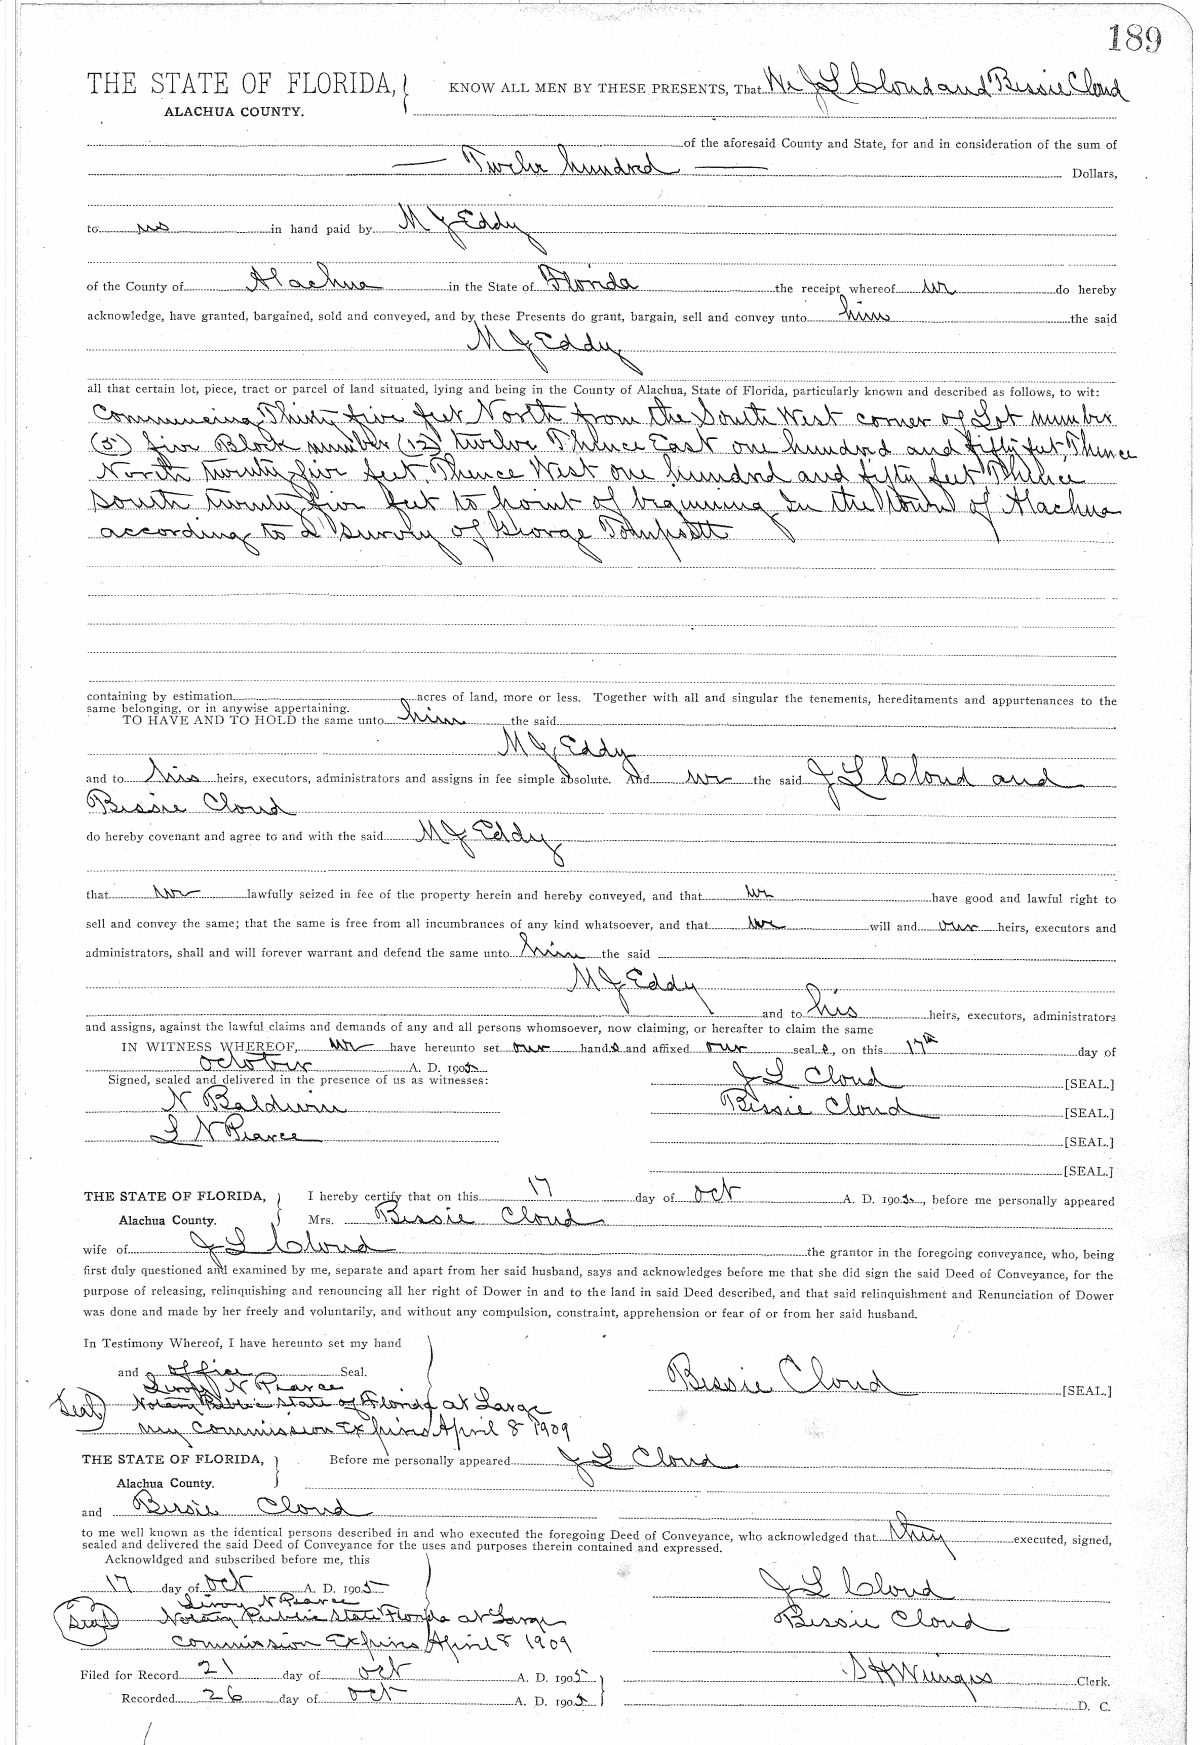 189
THE STATE OF FLORIDA, KNOW ALL MEN BY THESE PRESENTS, That We J L Cloud and Bessie Cloud
ALACHUA COUNTY.
of the aforesaid County and State, for and in consideration of the sum of
— Twelve hundred — Dollars,
to us in hand paid by M J Eddy
of the County of Alachua in the State of Florida the receipt whereof we do hereby
acknowledge, have granted, bargained, sold and conveyed, and by these Presents do grant, bargain, sell and convey unto him the said
M J Eddy
all that certain lot, piece, tract or parcel of land situated, lying and being in the County of Alachua, State of Florida, particularly known and described as follows, to wit:
Commencing Thirty five feet North from the South West corner of Lot number
(5) five Block number (12) twelve Thence East one hundred and fifty feet, Thence
North twenty five feet, Thence West one hundred and fifty feet Thence
South twenty five feet to point of beginning In the town of Alachua
according to a survey of George
containing by estimation acres of land, more or less. Together with all and singular the tenements, hereditaments and appurtenances to the
same belonging, or in anywise appertaining.
TO HAVE AND TO HOLD the same unto him the said
M J Eddy
and to his heirs, executors, administrators and assigns in fee simple absolute. And we the said J L Cloud and
Bessie Cloud
do hereby covenant and agree to and with the said M J Eddy
that we lawfully seized in fee of the property herein and hereby conveyed, and that we have good and lawful right to
sell and convey the same; that the same is free from all incumbrances of any kind whatsoever, and that we will and our heirs, executors and
administrators, shall and will forever warrant and defend the same unto him the said
M J Eddy
and to his heirs, executors, administrators
and assigns, against the lawful claims and demands of any and all persons whomsoever, now claiming, or hereafter to claim the same
IN WITNESS WHEREOF, we have hereunto set our hands and affixed our seal s, on this 17th day of
October A. D. 1905
Signed, sealed and delivered in the presence of us as witnesses: J L Cloud [SEAL.]
N Baldwin Bessie Cloud [SEAL.]
L N Pearce [SEAL.]
[SEAL.]
THE STATE OF FLORIDA, I hereby certify that on this 17 day of Oct A. D. 1905, before me personally appeared
Alachua County. Mrs. Bessie Cloud
wife of J L Cloud the grantor in the foregoing conveyance, who, being
first duly questioned and examined by me, separate and apart from her said husband, says and acknowledges before me that she did sign the said Deed of Conveyance, for the
purpose of releasing, relinquishing and renouncing all her right of Dower in and to the land in said Deed described, and that said relinquishment and Renunciation of Dower
was done and made by her freely and voluntarily, and without any compulsion, constraint, apprehension or fear of or from her said husband.
In Testimony Whereof, I have hereunto set my hand
and office Seal. Bessie Cloud [SEAL.]
Leroy N Pearce
(Seal) Notary Public State of Florida at Large
my Commission Expires April 8 1909
THE STATE OF FLORIDA, Before me personally appeared J L Cloud
Alachua County.
and Bessie Cloud
to me well known as the identical persons described in and who executed the foregoing Deed of Conveyance, who acknowledged that they executed, signed,
sealed and delivered the said Deed of Conveyance for the uses and purposes therein contained and expressed.
Acknowldged and subscribed before me, this
17 day of Oct A. D. 1905 J L Cloud
Leroy N Pearce
(Seal) Notary Public State Florida at Large Bessie Cloud
Commission Expires April 8 1909
Filed for Record 21 day of Oct A. D. 1905 S H Wienges Clerk.
Recorded 26 day of Oct A. D. 1905 D. C.